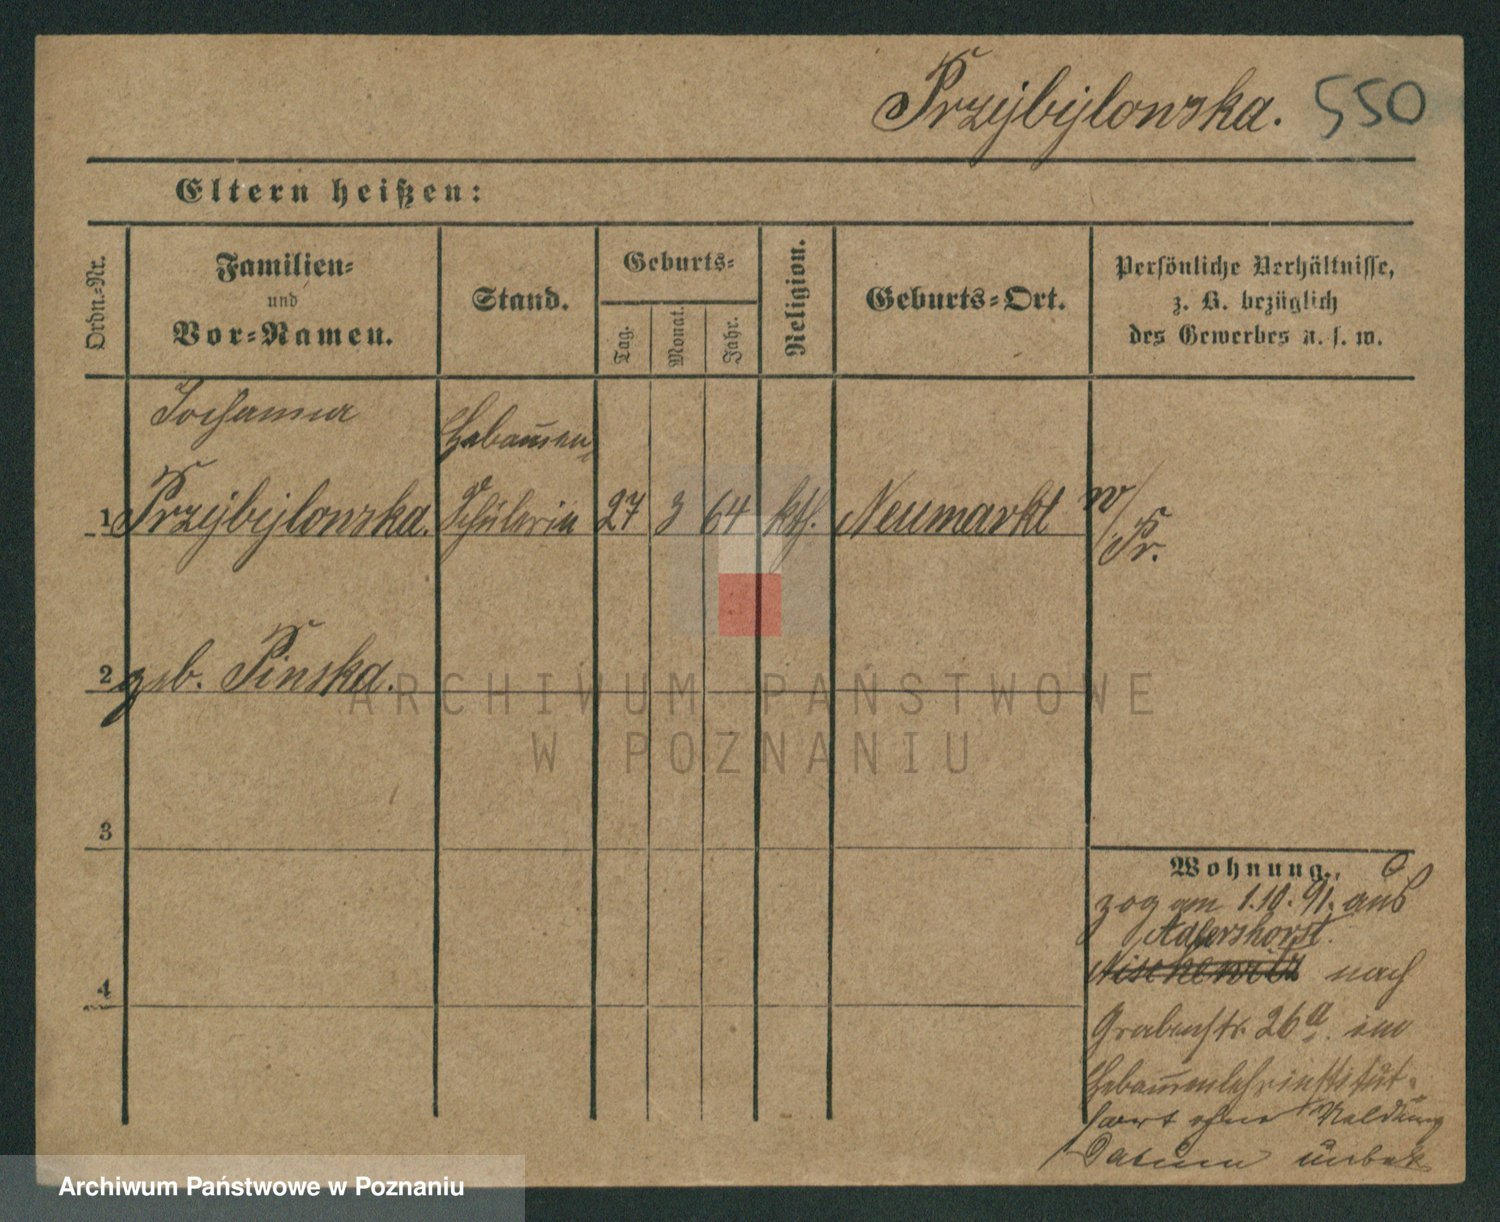 Przybylowska. 550
Eltern heißen:
Ordn.-Nr.
Familien-
und
Vor-Namen.
Stand.
Geburts-
Tag.
Monat.
Jahr.
Religion.
Geburts-Ort.
Persönliche Verhältnisse,
z. B. bezüglich
des Gewerbes u. s. w.
Johanna
Hebam̄en-
1 Przybylowska. Schülerin 27 3 64 kth. Neumarkt W/Pr.
2 geb. Pinska.
3
4
Wohnung.
zog am 1.10.91. aus
Adlershorst.
Nischewitz nach
Grabenstr. 26a. im
Hebam̄enlehrinstitut.
fort ohne Meldung
Datum unbek
ARCHIWUM PAŃSTWOWE
W POZNANIU
Archiwum Państwowe w Poznaniu